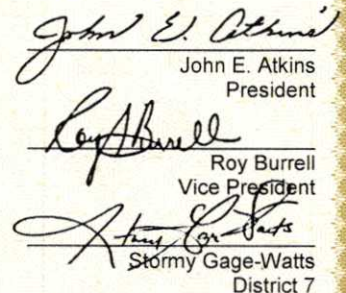 John E. Atkins
John E. Atkins
President
Roy Burrell
Roy Burrell
Vice President
Stormy Gage-Watts
District 7